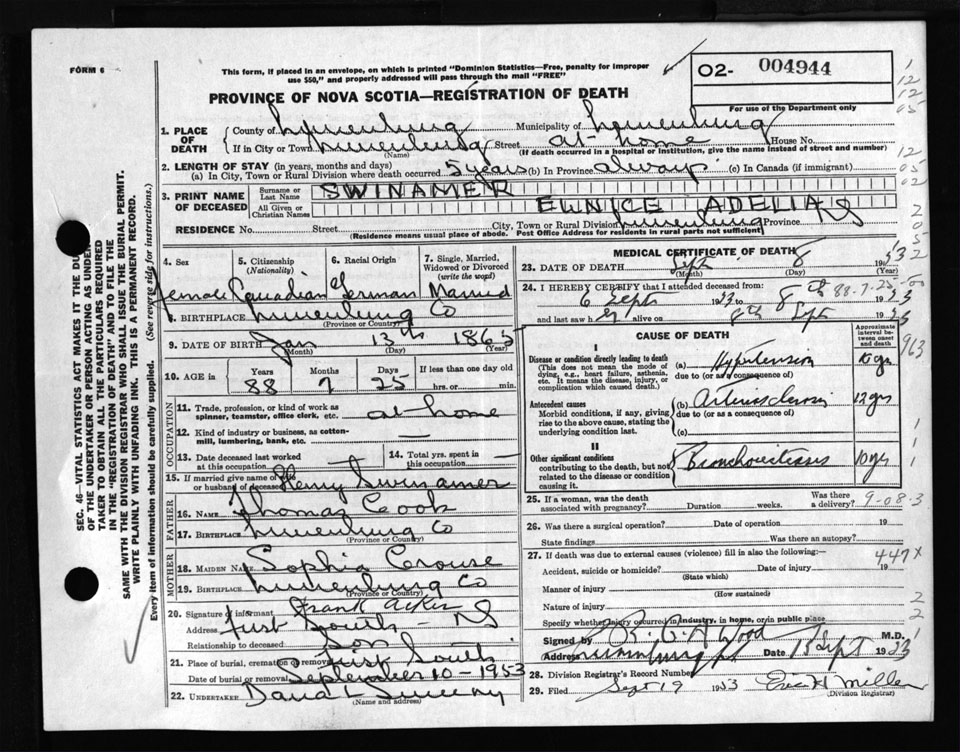 FORM 6
This form, if placed in an envelope, on which is printed "Dominion Statistics—Free, penalty for improper
use $50," and properly addressed will pass through the mail "FREE"
PROVINCE OF NOVA SCOTIA—REGISTRATION OF DEATH
02- 004944
For use of the Department only
1. PLACE OF DEATH
County of Lunenburg Municipality of Lunenburg
If in City or Town Lunenburg Street at home House No.
(Name) (If death occurred in a hospital or institution, give the name instead of street and number)
2. LENGTH OF STAY (in years, months and days)
(a) In City, Town or Rural Division where death occurred 5 years (b) In Province always (c) In Canada (if immigrant)
3. PRINT NAME OF DECEASED
Surname or Last Name SWINAMER
All Given or Christian Names EUNICE ADELIA
RESIDENCE No. Street City, Town or Rural Division Lunenburg Province NS
(Residence means usual place of abode. Post Office Address for residents in rural parts not sufficient)
4. Sex
5. Citizenship (Nationality)
6. Racial Origin
7. Single, Married, Widowed or Divorced (write the word)
female Canadian German Married
8. BIRTHPLACE Lunenburg Co
(Province or Country)
9. DATE OF BIRTH Jan 13th 1865
(Month) (Day) (Year)
10. AGE in Years Months Days If less than one day old
88 7 25 hrs. or min.
OCCUPATION
11. Trade, profession, or kind of work as spinner, teamster, office clerk, etc. at home
12. Kind of industry or business, as cotton-mill, lumbering, bank, etc. —
13. Date deceased last worked at this occupation
14. Total yrs. spent in this occupation —
15. If married give name of wife or husband of deceased Henry Swinamer
FATHER
16. NAME Thomas Cook
17. BIRTHPLACE Lunenburg Co
(Province or Country)
MOTHER
18. MAIDEN NAME Sophia Crouse
19. BIRTHPLACE Lunenburg Co
(Province or Country)
20. Signature of informant Frank Acker
Address First South - NS
Relationship to deceased Son
21. Place of burial, cremation or removal First South
Date of burial or removal September 10 - 1953
22. UNDERTAKER David L Sweeny
(Name and address)
MEDICAL CERTIFICATE OF DEATH
23. DATE OF DEATH Sept 8 1953
(Month) (Day) (Year)
24. I HEREBY CERTIFY that I attended deceased from:
6 Septs 1953 to 8th 1953
88-7-25-00
and last saw h er alive on 8th Sept 1953
CAUSE OF DEATH
Approximate interval between onset and death
I
Disease or condition directly leading to death
(This does not mean the mode of dying, e.g., heart failure, asthenia, etc. It means the disease, injury, or complication which caused death.)
(a) Hypertension 10 yrs
due to (or as a consequence of)
Antecedent causes
Morbid conditions, if any, giving rise to the above cause, stating the underlying condition last.
(b) Arteriosclerosis 12 yrs
due to (or as a consequence of)
(c)
II
Other significant conditions
contributing to the death, but not related to the disease or condition causing it.
Bronchiectasis 10 yrs
25. If a woman, was the death associated with pregnancy? Duration weeks. Was there a delivery?
9-08-3
26. Was there a surgical operation? Date of operation 19
State findings Was there an autopsy?
27. If death was due to external causes (violence) fill in also the following:—
447X
Accident, suicide or homicide? Date of injury 19
(State which)
Manner of injury
(How sustained)
Nature of injury
Specify whether injury occurred in industry, in home, or in public place
Signed by R. C. A. Wood M.D.
Address Lunenburg Date 18 Sept 1953
28. Division Registrar's Record Number
29. Filed Sept 19 1953 Eric H Miller
(Division Registrar)
SEC. 46—VITAL STATISTICS ACT MAKES IT THE DU
OF THE UNDERTAKER OR PERSON ACTING AS UNDER
TAKER TO OBTAIN ALL THE PARTICULARS REQUIRED
IN THE "REGISTRATION OF DEATH" AND TO FILE THE
SAME WITH THE DIVISION REGISTRAR WHO SHALL ISSUE THE BURIAL PERMIT.
WRITE PLAINLY WITH UNFADING INK. THIS IS A PERMANENT RECORD.
Every item of information should be carefully supplied. (See reverse side for instructions.)
1
12
12
05
12
05
02
2
0
5
2
963
1
1
2
2
1